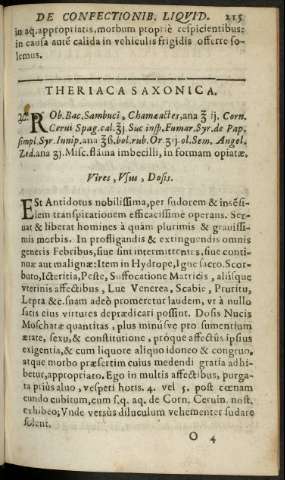 DE CONFECTIONIB. LIQVID. 215
in aq. appropriatis, morbum propriè respicientibus:
in causa autē calida in vehiculis frigidis offerre so-
lemus.
THERIACA SAXONICA.
ROb. Bac. Sambuci, Chamæactes, ana ℥ ij. Corn.
Cerui Spag. cal. ℥j. Suc insp. Fumar. Syr. de Pap.
simpl. Syr. Iunip. ana ℥ß. bol. rub. Or ʒij. ol. Sem. Angel.
Zed. ana ʒj. Misc. flāma imbecilli, in formam opiatæ.
Vires, Vsus, Dosis.
ESt Antidotus nobilissima, per sudorem & insēsi-
lem transpirationem efficacissimè operans. Ser-
uat & liberat homines à quàm plurimis & grauissi-
mis morbis. In profligandis & extinguendis omnis
generis Febribus, siue sint intermittentes, siue conti-
nuæ aut malignæ: Item in Hydrope, Igne sacro, Scor-
buto, Icteritia, Peste, Suffocatione Matricis, aliisque
vterinis affectibus, Lue Venerea, Scabie, Pruritu,
Lepra &c. suam adeò promeretur laudem, vt à nullo
satis eius virtutes deprædicari possint. Dosis Nucis
Moschatæ quantitas, plus minusve pro sumentium
ætate, sexu, & constitutione, próque affectûs ipsius
exigentia, & cum liquore aliquo idoneo & congruo,
atque morbo præsertim cuius medendi gratia adhi-
betur, appropriato. Ego in multis affectibus, purga-
ta priùs aluo, vesperi horis. 4. vel 5. post cœnam
eundo cubitum, cum s. q. aq. de Corn. Ceruin. nost.
exhibeo; Vnde versùs diluculum vehementer sudare
solent.
O 4